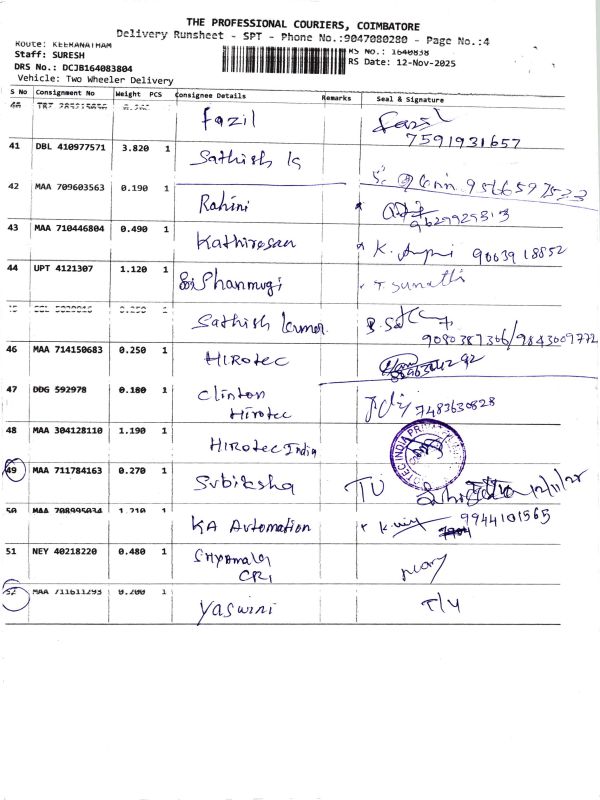 THE PROFESSIONAL COURIERS, COIMBATORE
Delivery Runsheet - SPT - Phone No.:9047080280 - Page No.:4
Route: KEERANATHAM
RS No.: 1640838
Staff: SURESH
RS Date: 12-Nov-2025
DRS No.: DCJB164083804
Vehicle: Two Wheeler Delivery
S No Consignment No Weight PCS Consignee Details Remarks Seal & Signature
Fazil
7591931657
41 DBL 410977571 3.820 1 Sathish K
42 MAA 709603563 0.190 1 Rahini
9629929313
43 MAA 710446804 0.490 1 Kathiresan K. 9003918852
44 UPT 4121307 1.120 1 Shanmugi T Sumathi
Sathish kumar
9080387306/9843009772
46 MAA 714150683 0.250 1 HIROTEC
47 DDG 592978 0.180 1 Clinton
Hirotec 7483630828
48 MAA 304128110 1.190 1 HIROTEC India
49 MAA 711784163 0.270 1 Subiksha
50 MAA 708995034 1.210 1 KA Automation 9944101565
51 NEY 40218220 0.480 1 Shyamala
CRI
52 MAA 711611293 0.200 1 Yaswini T/U